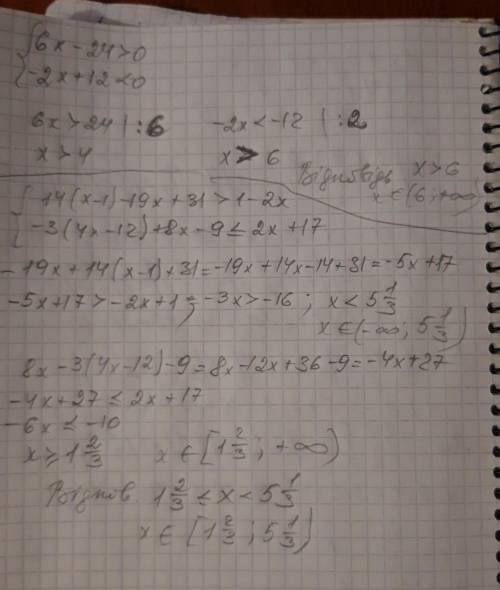 { 6x - 24 > 0
-2x + 12 < 0
6x > 24 | : 6   -2x < -12 | : 2
x > 4   x > 6
Відповідь x > 6
x ∈ (6; +∞)
{ 14(x-1) - 19x + 31 > 1 - 2x
-3(4x-12) + 8x - 9 ≤ 2x + 17
- 19x + 14(x-1) + 31 = -19x + 14x - 14 + 31 = -5x + 17
-5x + 17 > -2x + 1 ; = -3x > -16 ; x < 5 1/3
x ∈ (-∞; 5 1/3)
8x - 3(4x-12) - 9 = 8x - 12x + 36 - 9 = -4x + 27
-4x + 27 ≤ 2x + 17
-6x ≤ -10
x ≥ 1 2/3   x ∈ [1 2/3; +∞)
Віднов. 1 2/3 ≤ x < 5 1/3
x ∈ [1 2/3; 5 1/3)